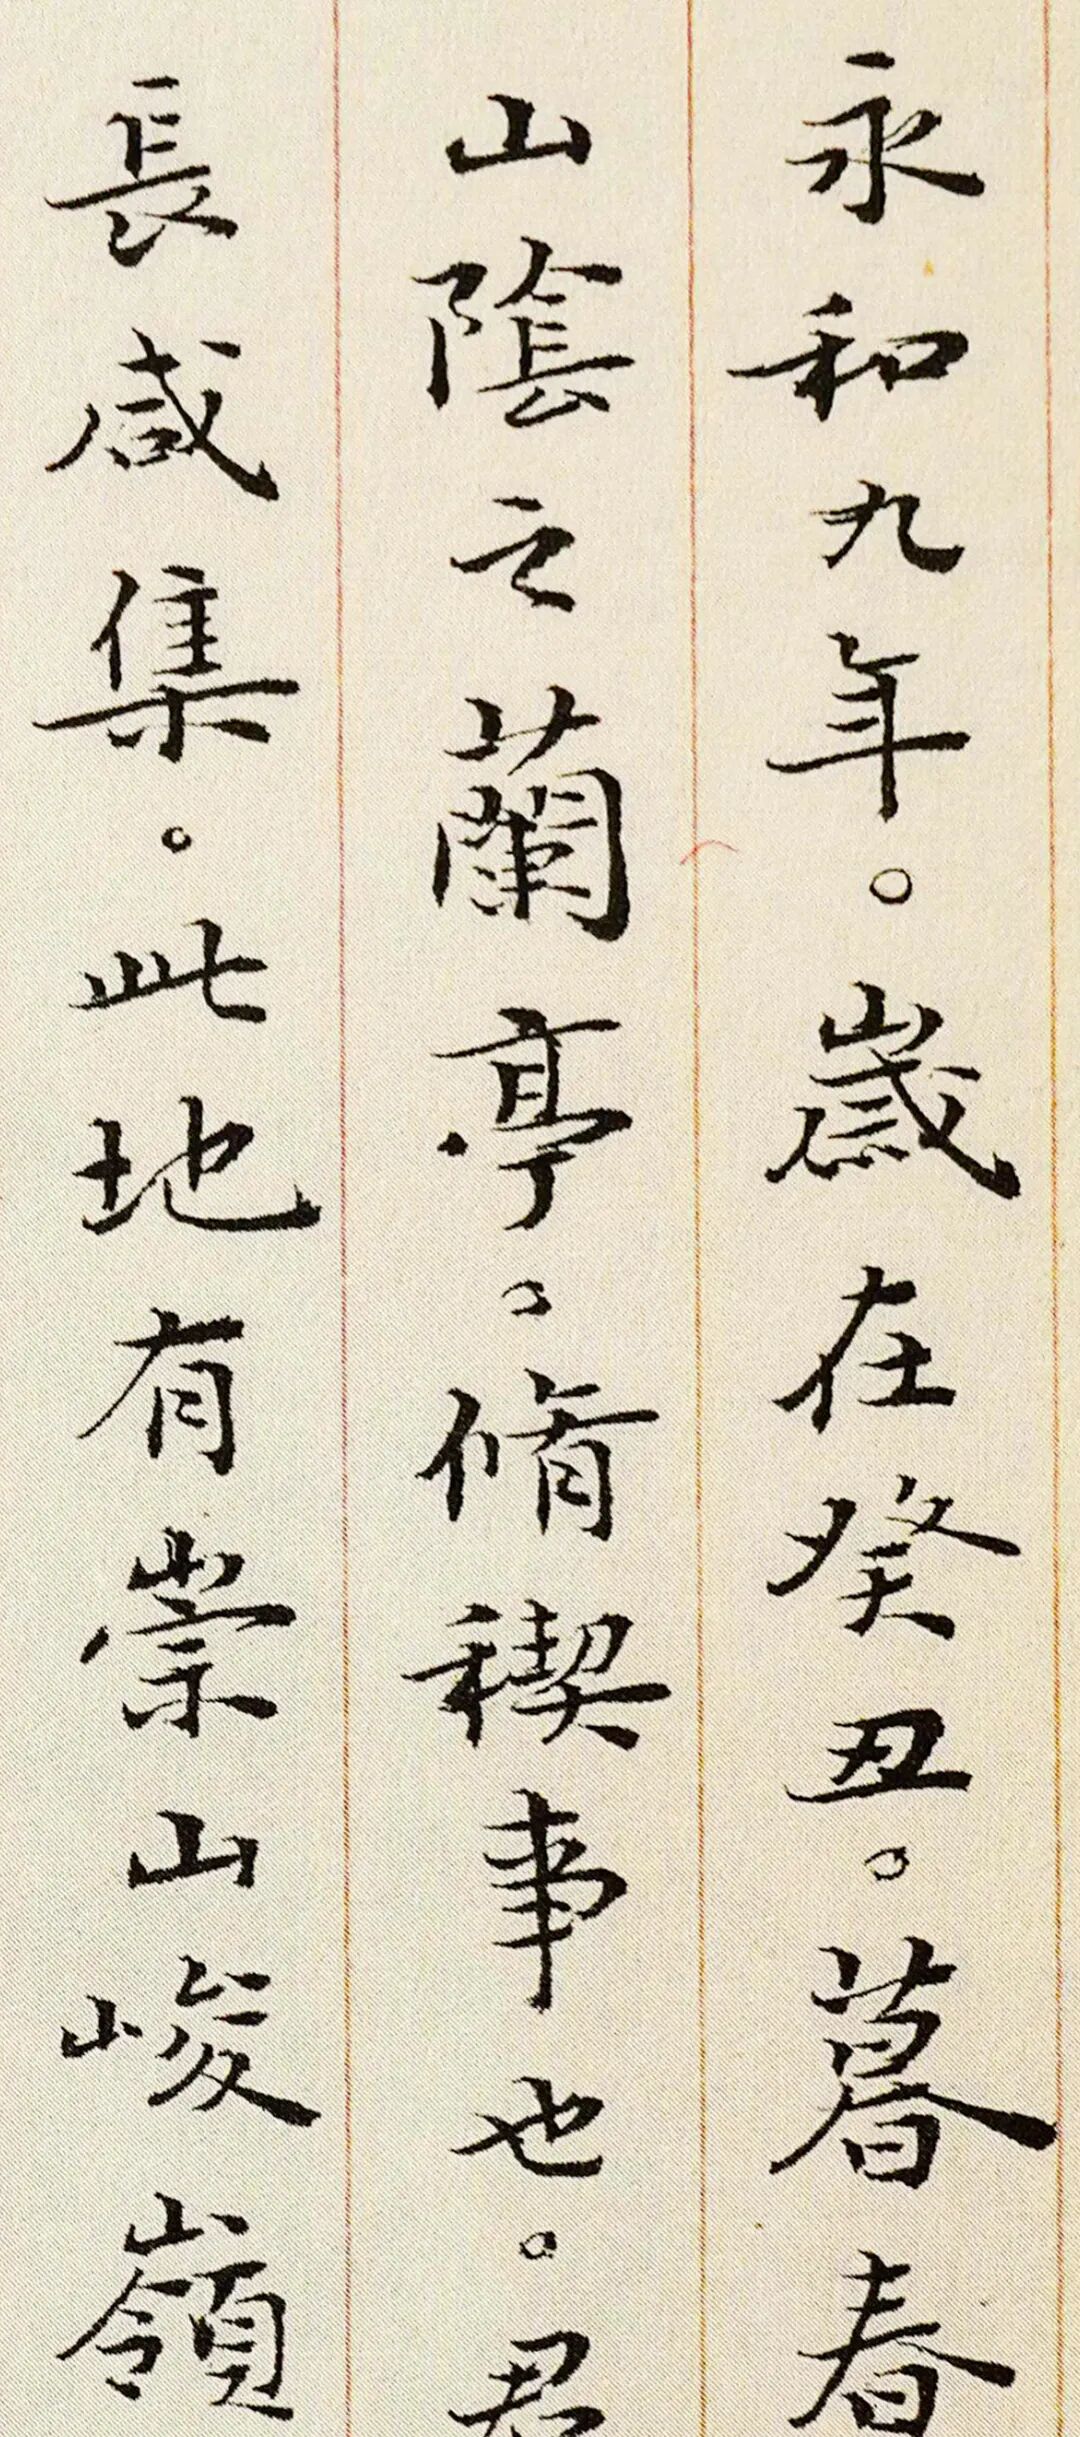 永和九年。歲在癸丑。暮春
山陰之蘭亭。脩稧事也。
長咸集。此地有崇山峻嶺